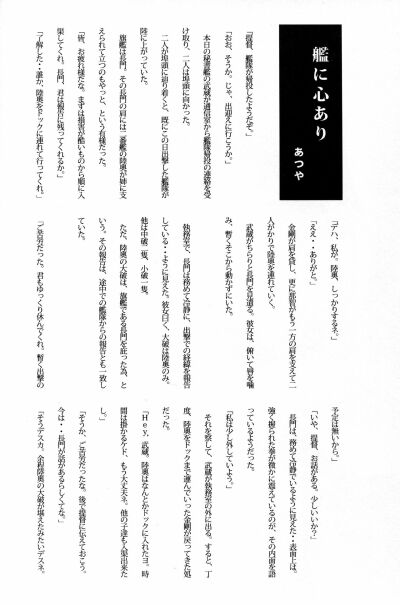 艦に心あり
あつや
「提督、艦隊が帰投したようだぞ。」
「おお、そうか。じゃ、出迎えに行こうか。」
本日の秘書艦の武蔵が通信室から艦隊帰投の連絡を受
け取り、二人は埠頭に向かった。
二人が埠頭に辿り着くと、既にこの日出撃した艦隊が
陸に上がっていた。
旗艦は長門。その長門の肩には二番艦の陸奥が姉に支
えられて立つのもやっと、という有様だった。
「皆、お疲れ様だな。まずは損害が酷いものから順に入
渠してくれ。長門、君は報告に残ってくれるか。」
「了解した・・誰か、陸奥をドックに連れて行ってくれ。」
「デハ、私が。陸奥、しっかりするネ。」
「ええ・・ありがと。」
金剛が肩を貸し、更に比叡がもう一方の肩を支えて二
人がかりで陸奥を連れていく。
武蔵がちらりと長門を見遣る。彼女は、俯いて唇を噛
み、暫くそこから動かずにいた。
執務室で、長門は務めて冷静に、出撃での経緯を報告
している・・ように見えた。彼女曰く、大破は陸奥のみ。
他は中破一隻、小破一隻。
ただ、陸奥の大破は、旗艦である長門を庇った為、と
いう。その報告は、途中での艦隊からの報告とも一致し
ていた。
「ご苦労だった。君もゆっくり休んでくれ。暫く出撃の
予定は無いから。」
「いや、提督、お話がある。少しいいか？」
長門は、務めて冷静でいるように見えた・・表面上は。
強く握られた拳が微かに震えているのが、その内面を語
っているようだった。
「私は少し外していよう。」
それを察して、武蔵が執務室の外に出る。すると、丁
度、陸奥をドックまで運んでいった金剛が戻ってきた処
だった。
「Hey，武蔵。陸奥はなんとかドックに入れたヨ。時
間は掛かるケド、もう大丈夫ネ。他の子達も入渠出来た
し。」
「そうか、ご苦労だったな。後で提督に伝えておこう。
今は・・長門が話があるらしくてな。」
「そうデスカ、余程陸奥の大破が堪えたみたいデスネ。